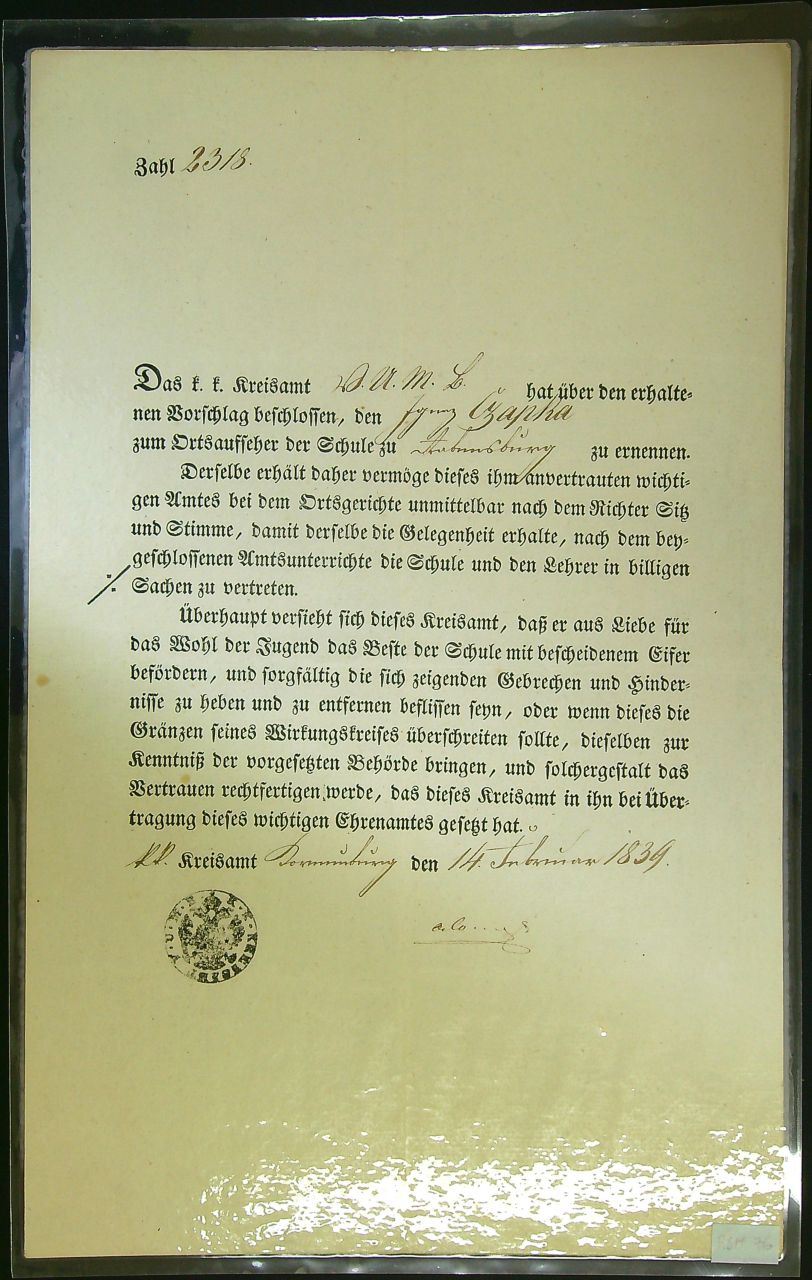 Zahl 2318.
Das k. k. Kreisamt V. U. M. B. hat über den erhalte⸗
nen Vorschlag beschlossen, den Ignaz Czapka
zum Ortsaufseher der Schule zu Rabensburg zu ernennen.
Derselbe erhält daher vermöge dieses ihm anvertrauten wichti⸗
gen Amtes bei dem Ortsgerichte unmittelbar nach dem Richter Sitz
und Stimme, damit derselbe die Gelegenheit erhalte, nach dem bey⸗
geschlossenen Amtsunterrichte die Schule und den Lehrer in billigen
Sachen zu vertreten.
Überhaupt versieht sich dieses Kreisamt, daß er aus Liebe für
das Wohl der Jugend das Beste der Schule mit bescheidenem Eifer
befördern, und sorgfältig die sich zeigenden Gebrechen und Hinder⸗
nisse zu heben und zu entfernen beflissen seyn, oder wenn dieses die
Gränzen seines Wirkungskreises überschreiten sollte, dieselben zur
Kenntniß der vorgesetzten Behörde bringen, und solchergestalt das
Vertrauen rechtfertigen werde, das dieses Kreisamt in ihn bei Über⸗
tragung dieses wichtigen Ehrenamtes gesetzt hat.
k.k. Kreisamt Korneuburg den 14. Februar 1839.
K. K. KREISAMT V. U. M. B.